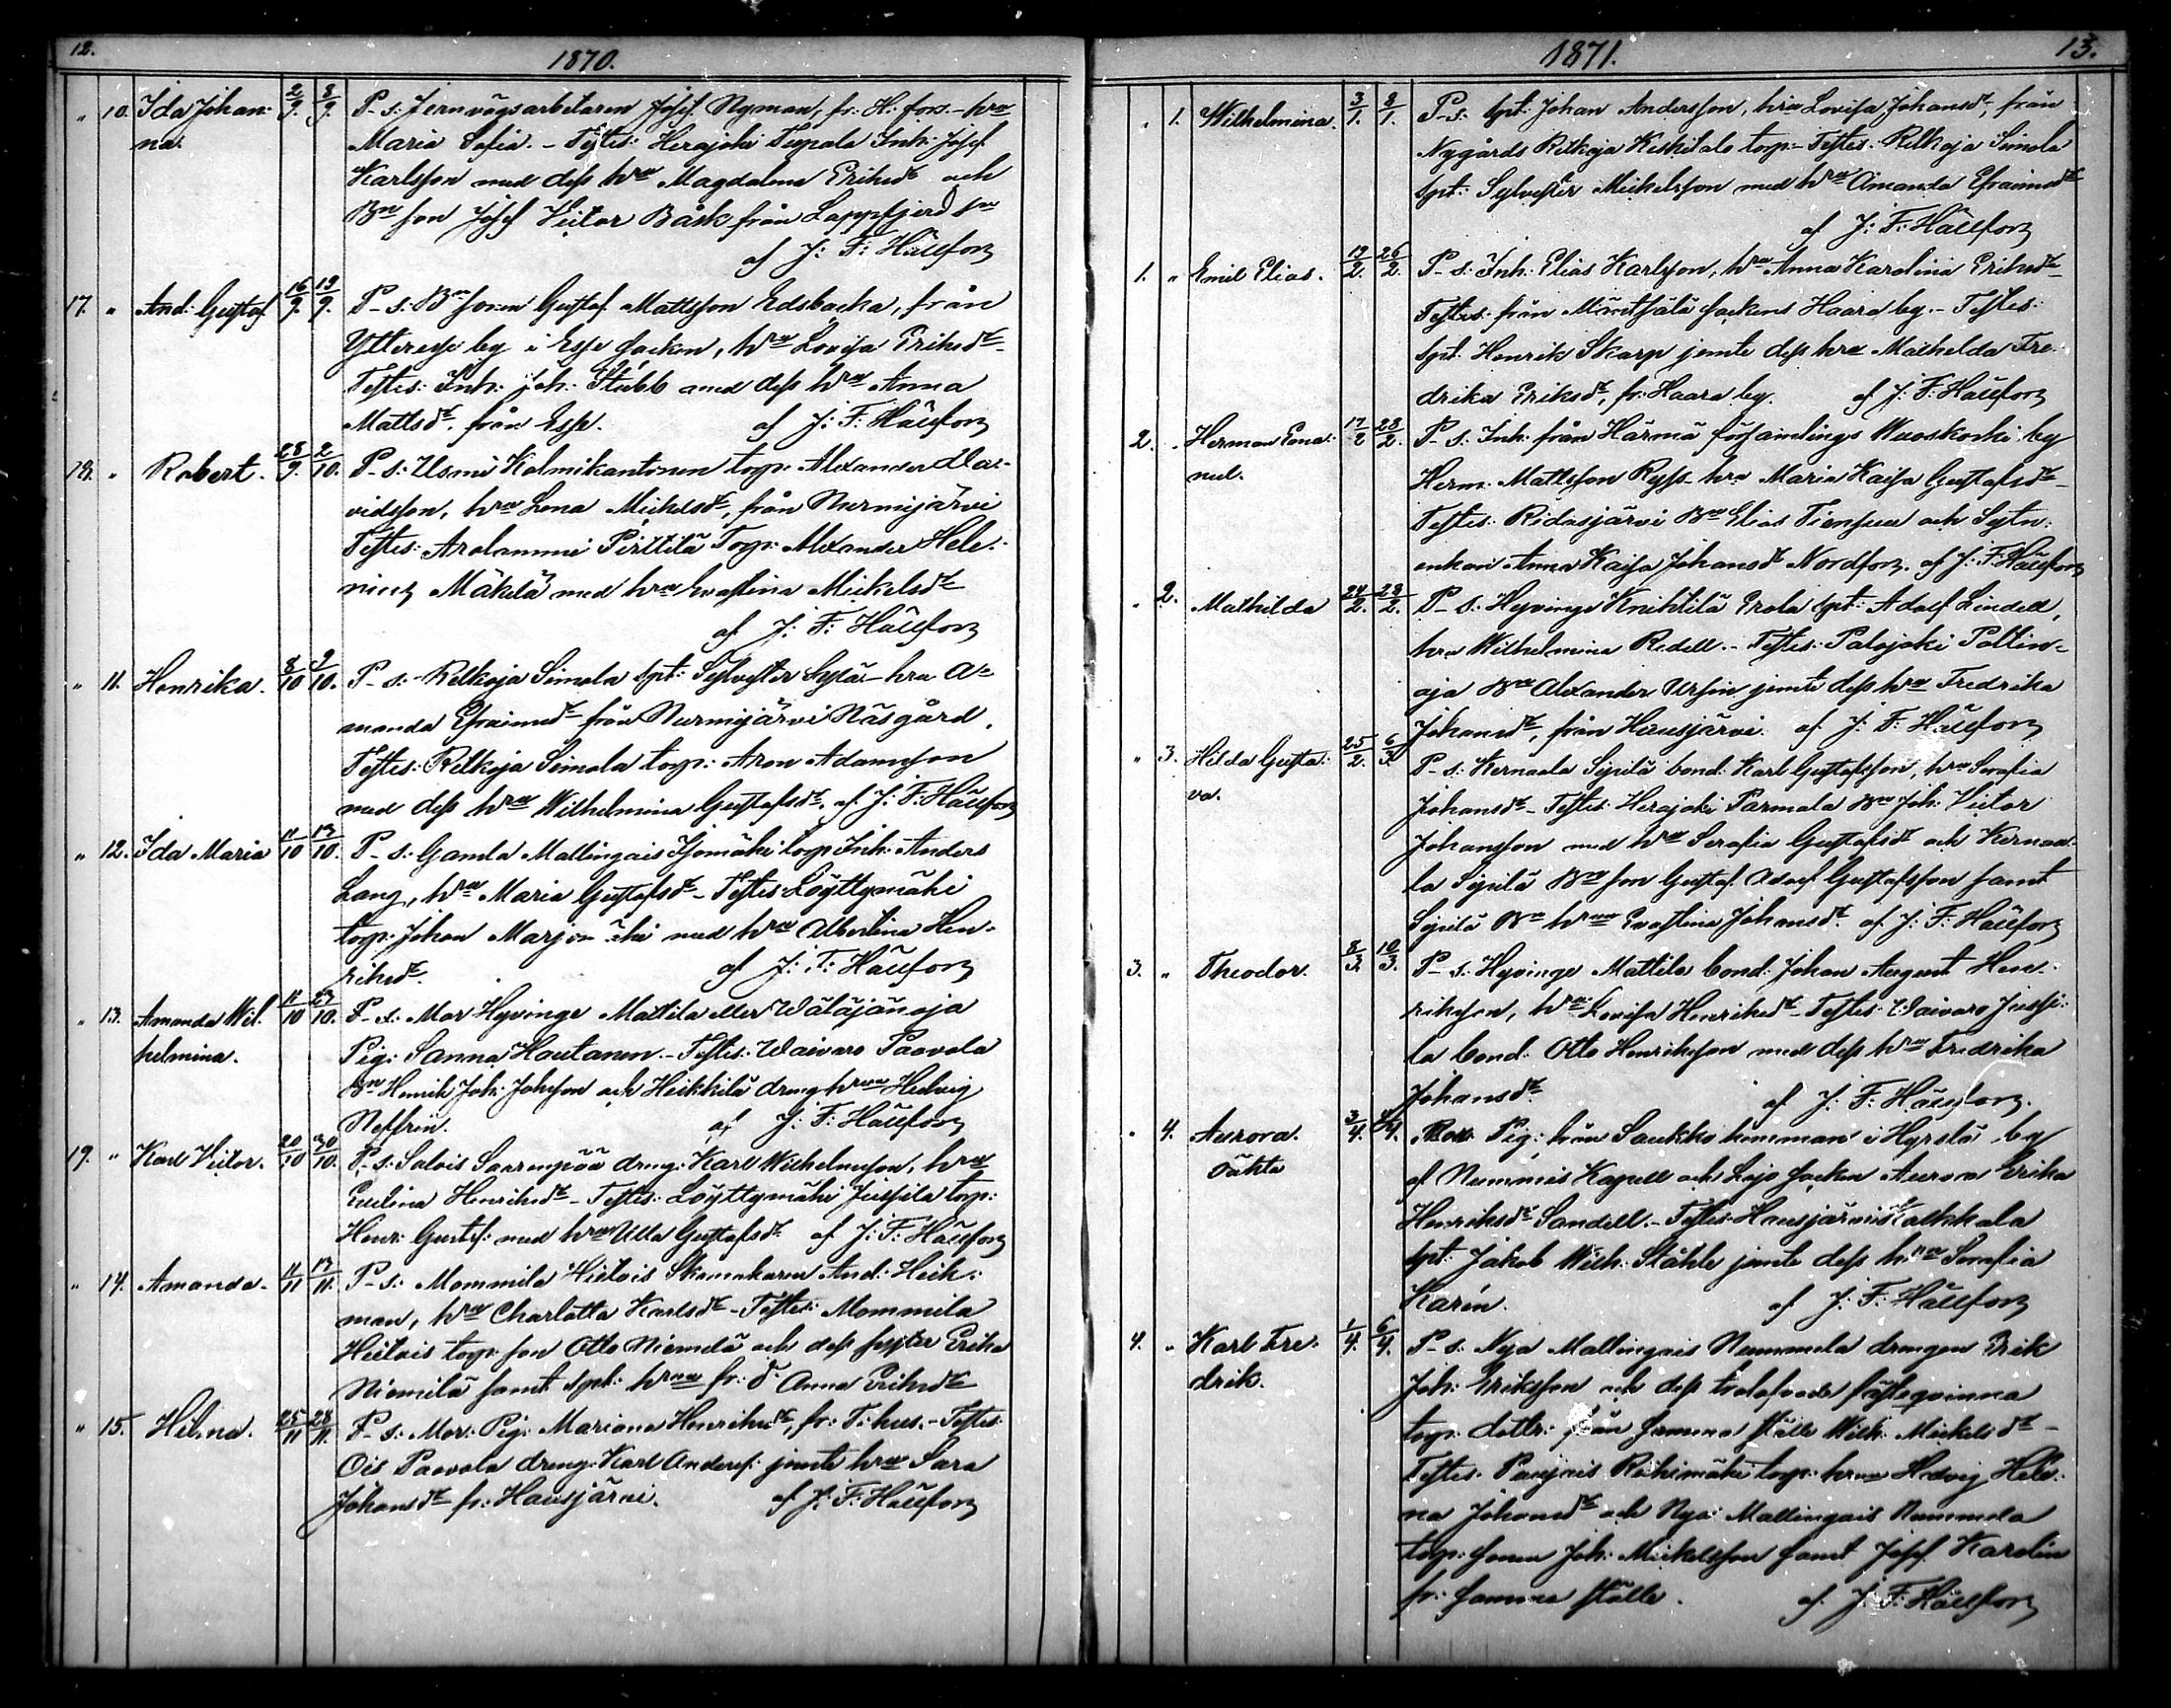 12.
1870.
" 10. Ida Johan= 2/9. 8/9. P–s: Jernvägsarbetaren Josef Nyman, fr. H:fors. – hru
na. Maria Sofia. – Testes: Herajoki Teppala Inh: Josef
Karlsson med dess hru Magdalena Eriksdr och
Bde son Josef Victor Bäsk från Lappfjerd sn
af J: F: Hällfors
17. " And: Gustaf 16/9. 19/9. P–s: Bde sonen Gustaf Mattsson Edsbacka, från
Ytteresse by i Esse socken, hru Lovisa Eriksdr –
Testes: Inh: Joh: Stubb med dess hru Anna
Mattsdr. från Esse. af J: F: Hällfors
18. " Robert. 28/9. 2/10. P–s: Usmi Kolmikantonen torp: Alexander
vidsson, hru Lena Mickelsdr, från Nurmijärvi
Testes: Arolammi Pirttilä Torp: Alexander Hele=
nius Mäkelä med hru Evastina Mickelsdr
af J: F: Hällfors
" 11. Henrika. 8/10 9/10. P–s: Relkoja Simola spt: Sylvester Sysiä – hru A=
manda Efraimsdr från Nurmijärvi Näsgård.
Testes: Relkoja Simola torp: Aron Adamsson
med dess hru Wilhelmina Gustafsdr. af J: F: Hällfors
" 12. Ida Maria 11/10 13/10. P–s: Gamla Mallingais Isomäki torp: Inh: Anders
Lang, hru Maria Gustafsdr – Testes: Löyttymäki
torp: Johan Marjomäki med hru Albertina Hen=
riksdr. af J: F: Hällfors
" 13. Amanda Wil= 11/10 23/10. P–s: Mor Hyvinge Mattila eller Wäläjänoja
helmina. Pig: Sanna Hautanen. – Testes: Waivaro Paavola
Bde Henrik Joh: Johsson och Heikkilä dreng hrun Hedvig
af J: F: Hällfors
19. " Karl Victor. 20/10 30/10. P–s: Salois Saarenpää dreng: Karl Wilhelmsson, hru
Evelina Henriksdr – Testes: Löyttymäki Jussila torp:
Henr: Gustf: med hru Ulla Gustafsdr. af J: F: Hällfors
" 14. Amanda. 11/11 13/11. P–s: Mommila Hietois Skomakaren And: Heik=
man, hru Charlotta Karlsdr – Testes: Mommila
Hietois torp: son Otto Niemelä och dess syster Erika
Niemilä samt spt: hrun fr: do Anna Eriksdr
" 15. Hilma. 25/11 28/11. P–s: Mor: Pig: Mariana Henriksdr, fr: T:hus. – Testes:
Ois Paavola dreng: Karl Andersf: jemte hru Sara
Johansdr fr: Hausjärvi. af J: F: Hällfors
1871.
13.
" 1. Wilhelmina. 3/1. 8/1. P–s: spt: Johan Andersson, hru Lovisa Johansdr, från
Nygårds Ritkoja Keskitalo torp: – Testes: Relkoja Simola
spt: Sylvester Mickelsson med hru Amanda Efraimsdr
af J: F: Hällfors
1. " Emil Elias. 12/2. 26/2. P–s: Inh: Elias Karlsson, hru Anna Karolina Eriksdr –
från Mäntsälä sockens Haara by. – Testes:
spt: Henrik Skarp jemte dess hru Mathilda Fre=
drika Eriksdr, fr: Haara by. af J: F: Hällfors
2. " Herman Ema= 17/2 28/2. P–s: Inh: från Härmä församlings Wuoskoski by
nuel. Herm: Mattsson Ryss – hru Maria Kaisa Gustafsdr –
Testes: Ridasjärvi Bde Elias Tiensuu och Sytn:
enkan Anna Kaisa Johansdr Nordfors. af J: F: Hällfors
" 2. Mathilda 24/2. 28/2. P–s: Hyvinge Knihtilä Erola spt: Adolf Lindell,
hru Wilhelmina Redell. – Testes: Palojoki Pollin=
oja Bde Alexander Ursin jemte dess hru Fredrika
Johansdr, från Hausjärvi. af J: F: Hällfors
" 3. Hilda Gusta= 25/2. 6/3. P–s: Kernaala Sipilä bond: Karl Gustafsson, hru Serafia
va. Johansdr – Testes: Herajoki Parmala Bde Joh: Victor
Johansson med hru Serafia Gustafsdr och Kernaa=
la Sipilä Bde son Gustaf Adolf Gustafsson samt
Sipilä Bde hrun Evastina Johansdr. af J: F: Hällfors
3. " Theodor. 8/3. 10/3. P–s: Hyvinge Mattila bond: Johan August Hen=
riksson, hru Lovisa Henriksdr – Testes: Waivaro Jussi=
la bond: Otto Henriksson med dess hru Fredrika
Johansdr. af J: F: Hällfors.
" 4. Aurora. 3/4. 4/4. Pig: från Saukko hemman i Hyrslä by
oäkta af Nummis Kapell och Lojo socken Aurora Erika
Henriksdr Sandell. – Testes: Hausjärvis Talkkala
spt: Jakob Wilh: Ståhle jemte dess hru Serafia
Karén. af J: F: Hällfors
4. " Karl Fre= 1/4. 6/4. P–s: Nya Mallingais Nummela drengen Erik
drik. Joh: Eriksson och dess trolofvade fästeqvinna
torp: dottr: från samma ställe Wilh: Mickelsdr –
Testes: Paujois Riihimäki torp: hrun Hedvig Hele=
na Johansdr och Nya Mallingais Nummela
torp: sonen Joh: Mickelsson samt Josef Karolin
fr: samma ställe. af J: F: Hällfors